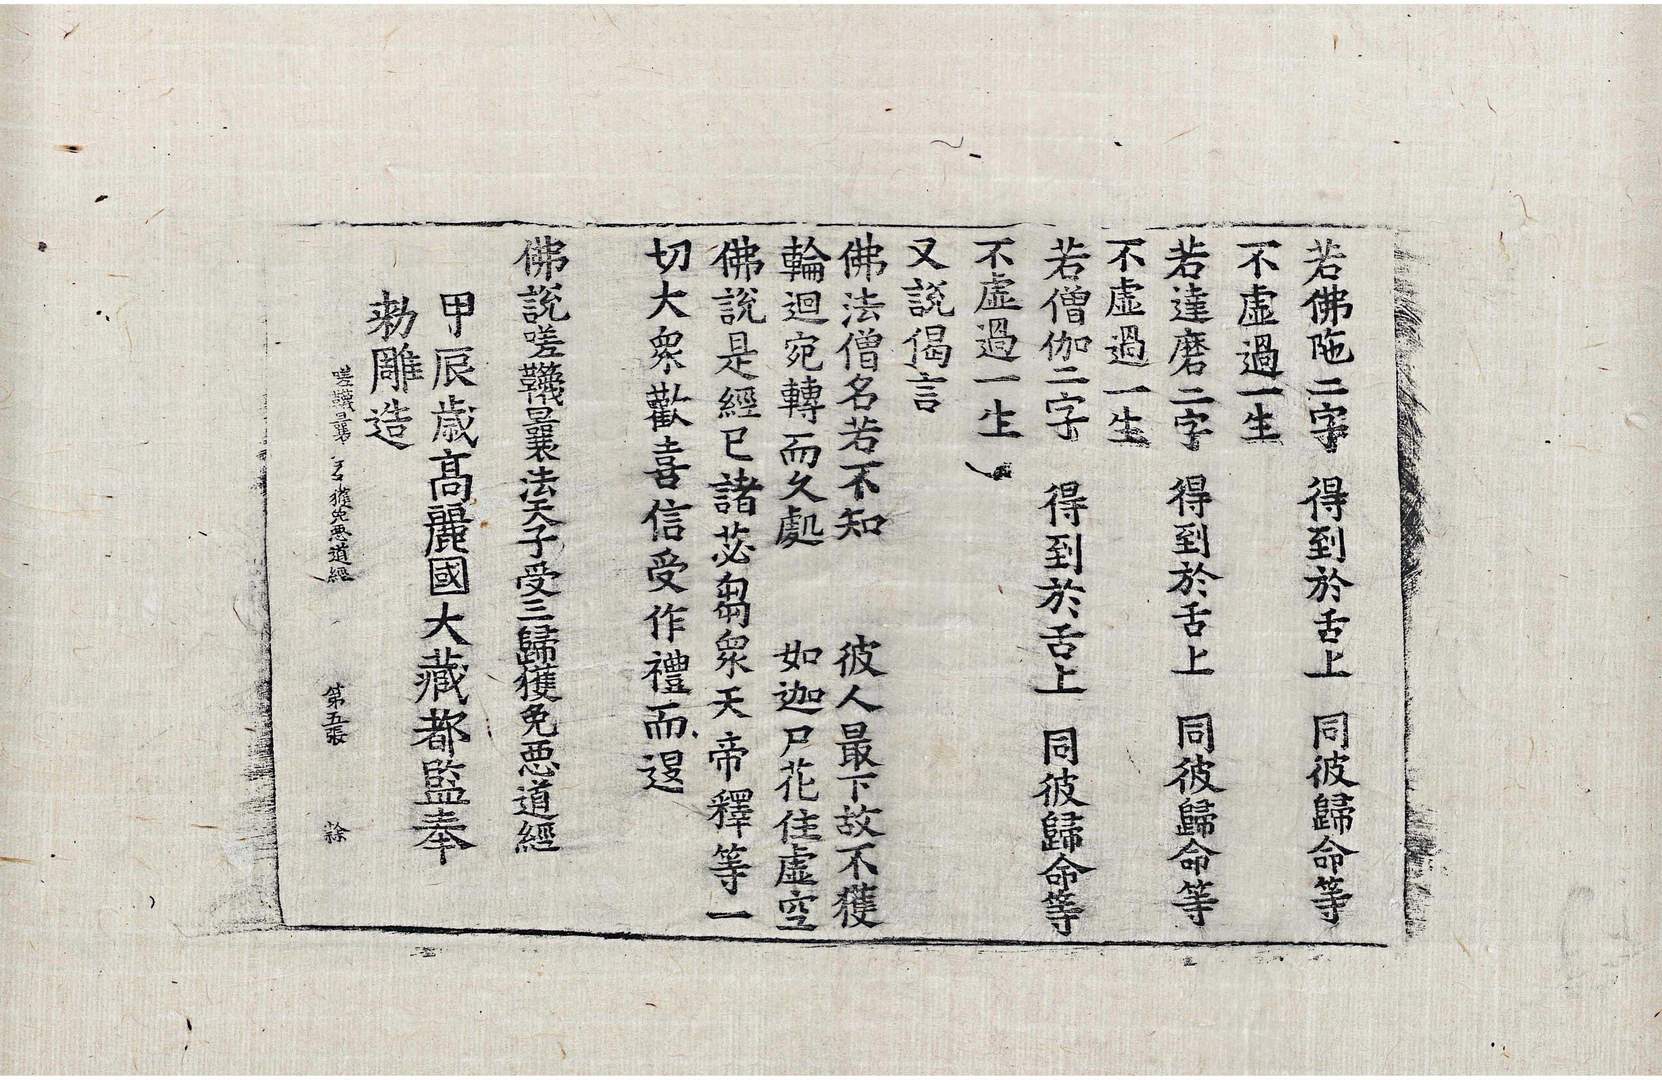 若佛陁二字　得到於舌上　同彼歸命等
不虛過一生
若達磨二字　得到於舌上　同彼歸命等
不虛過一生
若僧伽二字　得到於舌上　同彼歸命等
不虛過一生
又說偈言
佛法僧名若不知　彼人最下故不獲
輪迴宛轉而久處　如迦尸花住虛空
佛說是經已諸苾芻衆天帝釋等一
切大衆歡喜信受作禮而退
佛說嗟韈曩法天子受三歸獲免惡道經
甲辰歲高麗國大藏都監奉
勑雕造
嗟韈曩　獲免惡道經　第五張